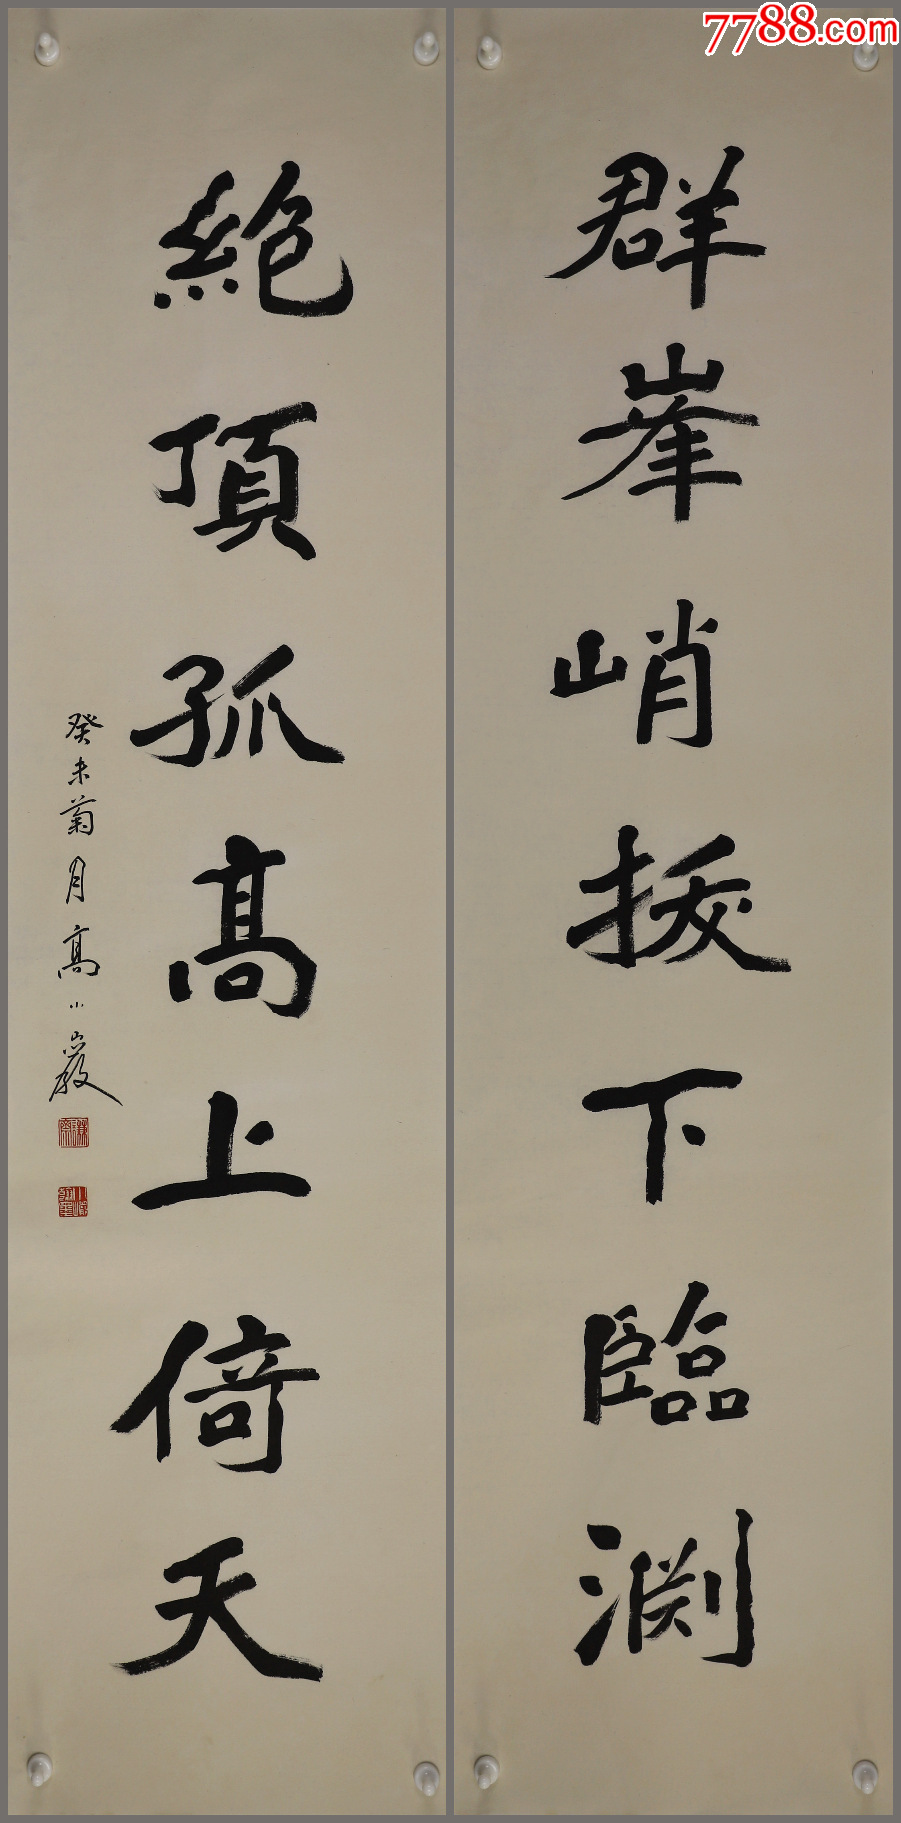 7788.com
群峯峭拔下臨渊
絶頂孤高上倚天
癸未菊月高小巖